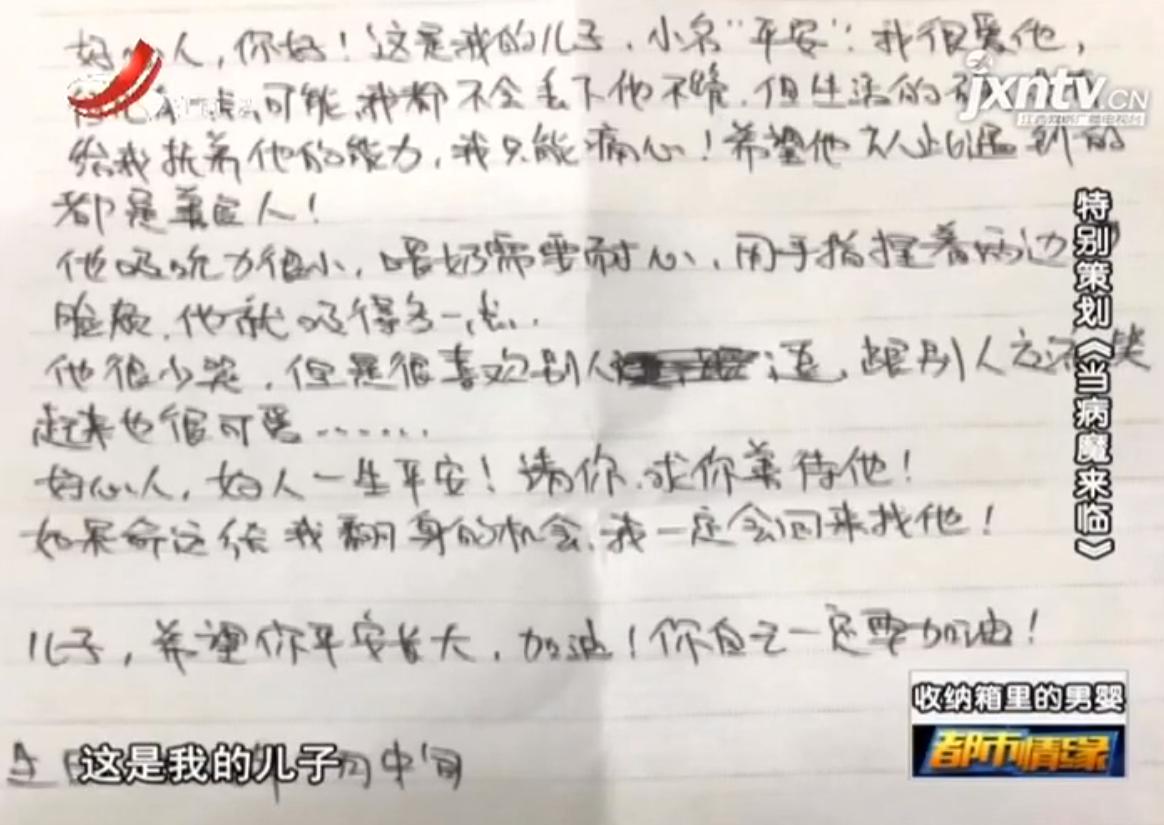 好心人，你好！这是我的儿子，小名“平安”：我很爱他，
可能，我都不会丢下他不管，但生活的
给我抚养他的能力，我只能痛心！希望他 遇到的
都是善良人！
他吸吮力很小，喂奶需要耐心，用手指捏着两边
脸颊，他就吸得多一点．
他很少笑，但是很喜欢别人 逗，跟别人 笑
起来也很可爱.......
好心人，好人一生平安！请你、求你善待他！
如果命运给我翻身的机会、我一定会回来找他！
儿子，希望你平安长大，加油！你自己一定要加油！
生 中间
这是我的儿子
jxntv.CN
江西网络广播电视台
特别策划《当病魔来临》
收纳箱里的男婴
都市情缘